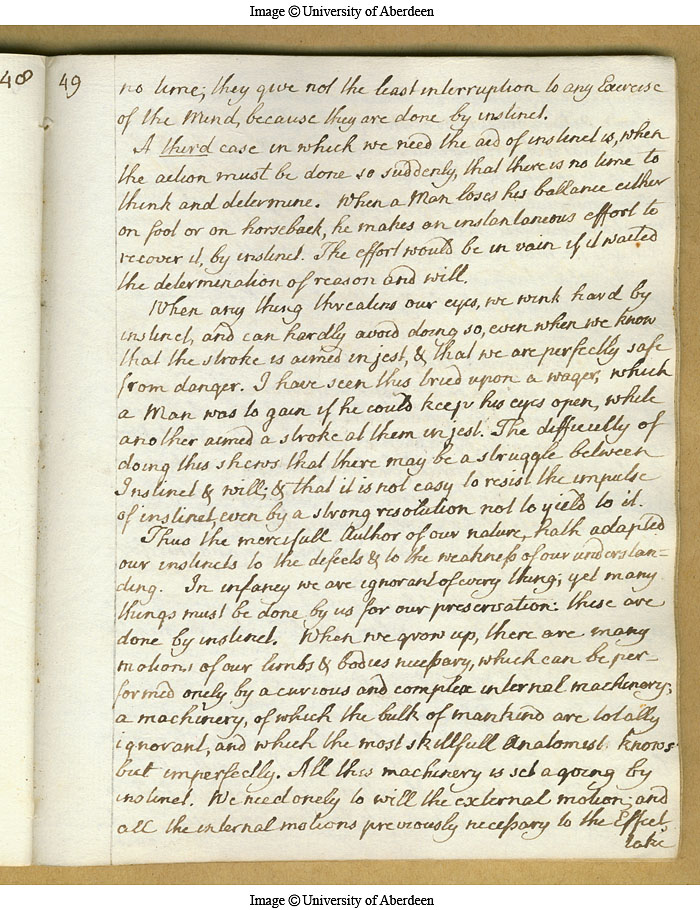 Image © University of Aberdeen
48
49
no time; they give not the least interruption to any Exercise
of the Mind, because they are done by instinct.
A third case in which we need the aid of instinct is, when
the action must be done so suddenly, that there is no time to
think and determine. When a Man loses his ballance either
on foot or on horseback, he makes an instantaneous effort to
recover it, by instinct. The effort would be in vain if it waited
the determination of reason and will.
When any thing threatens our eyes, we wink hard by
instinct, and can hardly avoid doing so, even when we know
that the stroke is aimed in jest, & that we are perfectly safe
from danger. I have seen this tried upon a wager, which
a Man was to gain if he could keep his eyes open, while
another aimed a stroke at them in jest. The difficulty of
doing this shews that there may be a struggle between
Instinct & will; & that it is not easy to resist the impulse
of instinct, even by a strong resolution not to yield to it.
Thus the mercifull Author of our nature, hath adapted
our instincts to the defects & to the weakneſs of our understan=
ding. In infancy we are ignorant of every thing; yet many
things must be done by us for our preservation: these are
done by instinct. When we grow up, there are many
motions of our limbs & bodies neceſsary, which can be per=
formed onely by a curious and complex internal machinery;
a machinery, of which the bulk of mankind are totally
ignorant, and which the most skillfull Anatomist knows
but imperfectly. All this machinery is set agoing by
instinct. We need onely to will the external motion, and
all the internal motions previously neceſsary to the Effect
take
Image © University of Aberdeen